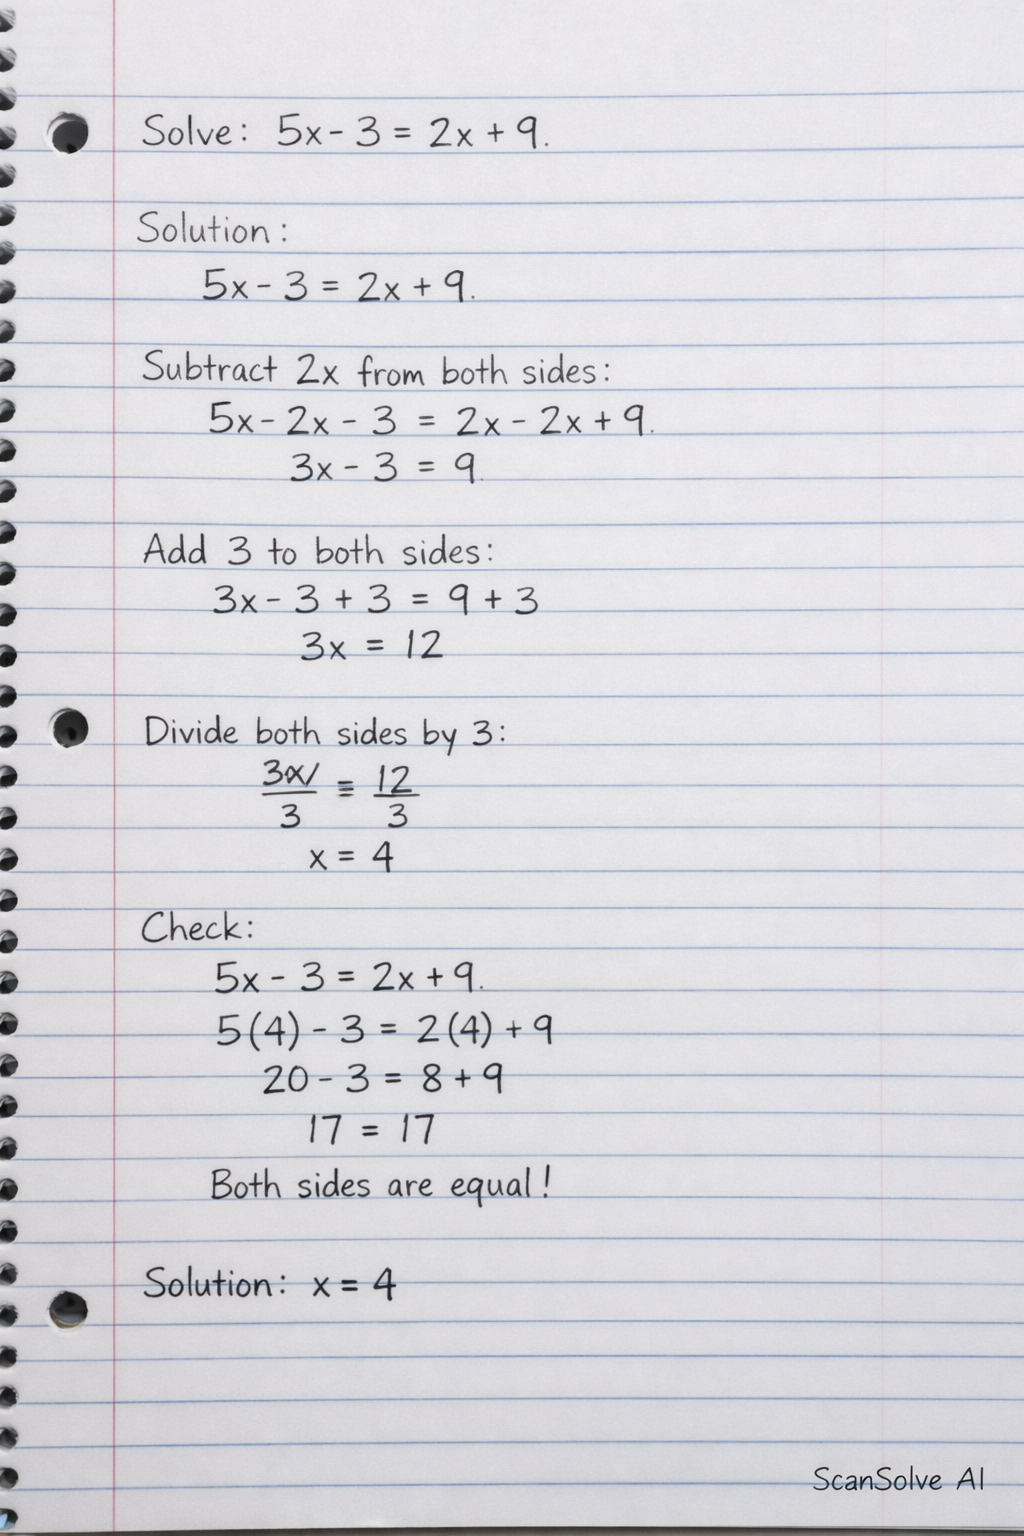 Solve: 5x - 3 = 2x + 9.
Solution:
5x - 3 = 2x + 9.
Subtract 2x from both sides:
5x - 2x - 3 = 2x - 2x + 9.
3x - 3 = 9.
Add 3 to both sides:
3x - 3 + 3 = 9 + 3
3x = 12
Divide both sides by 3:
3x/ ≡ 12
3 3
x = 4
Check:
5x - 3 = 2x + 9.
5(4) - 3 = 2(4) + 9
20 - 3 = 8 + 9
17 = 17
Both sides are equal!
Solution: x = 4
ScanSolve AI